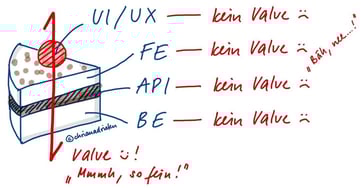 UI/UX — kein Value ☹
FE — kein Value ☹
API — kein Value ☹
BE — kein Value ☹
"Bäh, nee...!"
©chriswadneku
Value ☺!
"Mmmh, so fein!"